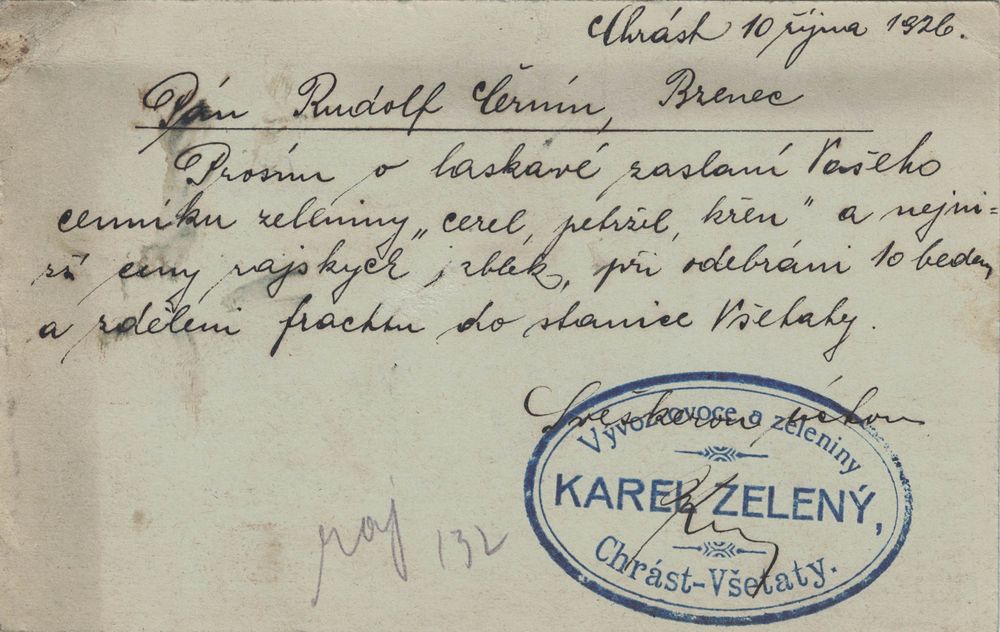 Chrást 10 října 1926.
Pán Rudolf Černín, Brenec
Prosím o laskavé zaslaní Vašeho
cenníku zeleniny „cerel, petržil, křen" a nejni=
zší ceny rajskych jablek, při odebráni 10 beden
a zděleni frachtu do stanice Všetaty.
S veškerou úctou
Vývoz ovoce a zeleniny
KAREL ZELENÝ,
Chrást-Všetaty.
raj 132